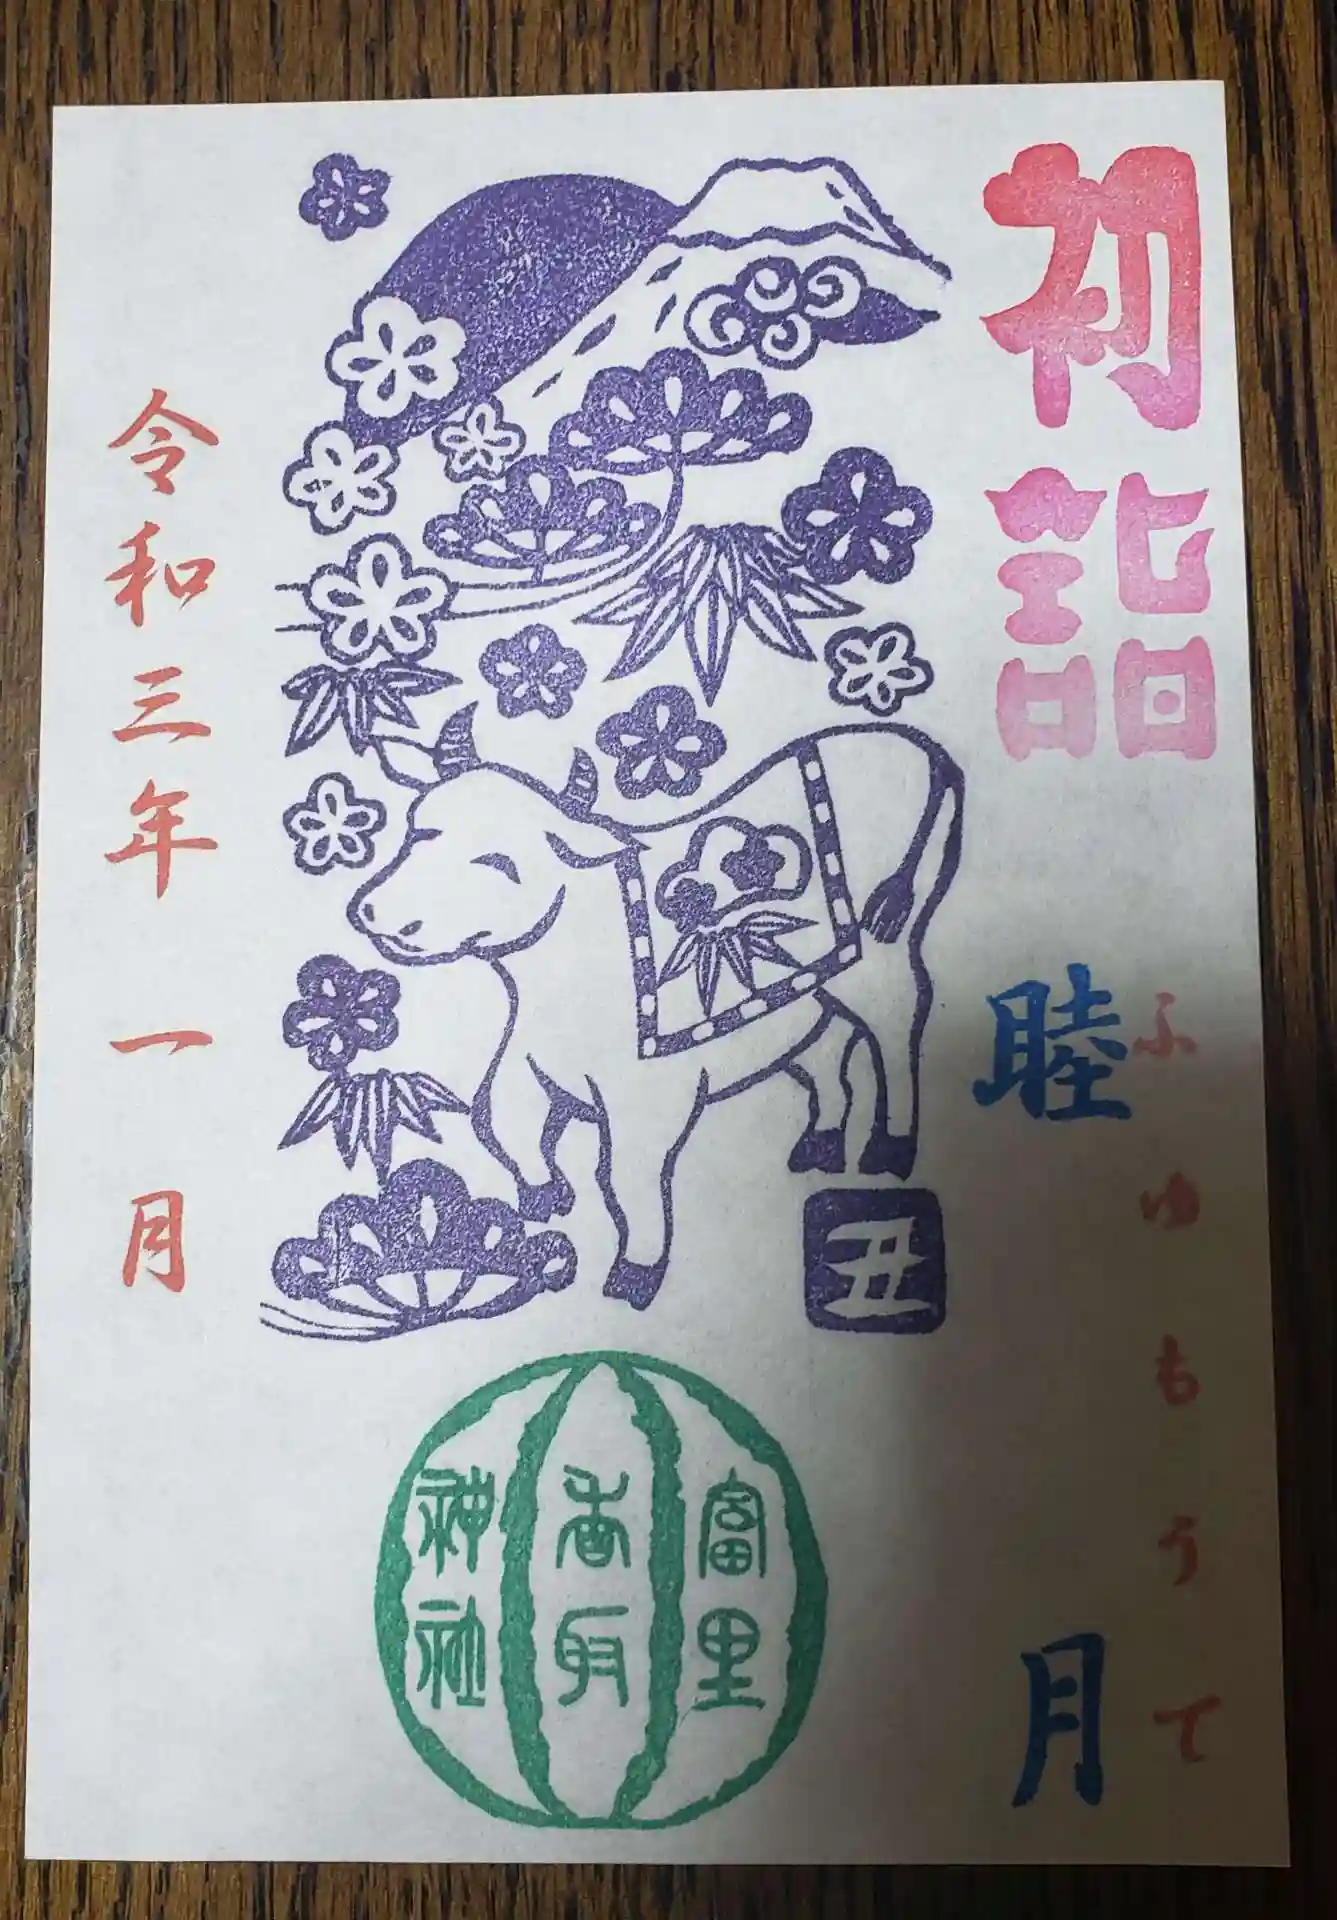 初詣
睦月
ふゆもうで
丑
富里
香取
神社
令和三年一月